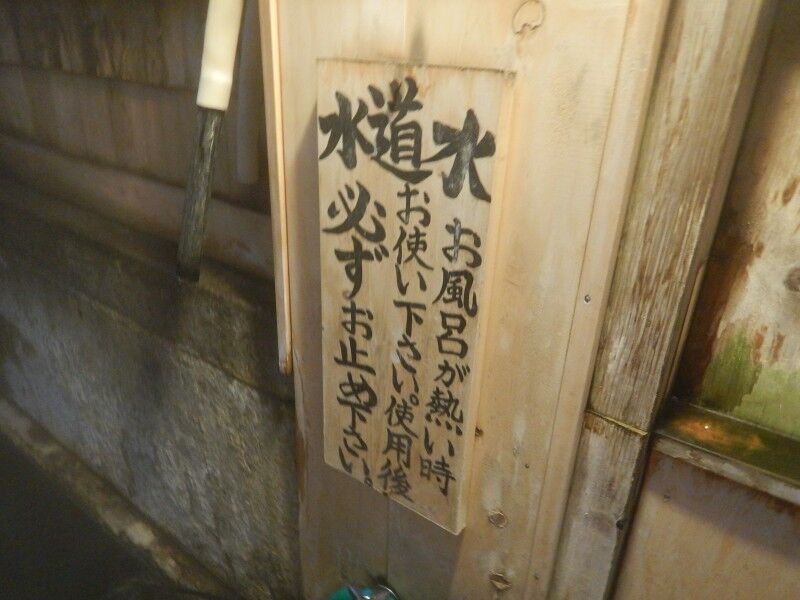 水道水
お風呂が熱い時
お使い下さい。使用後
必ずお止め下さい。